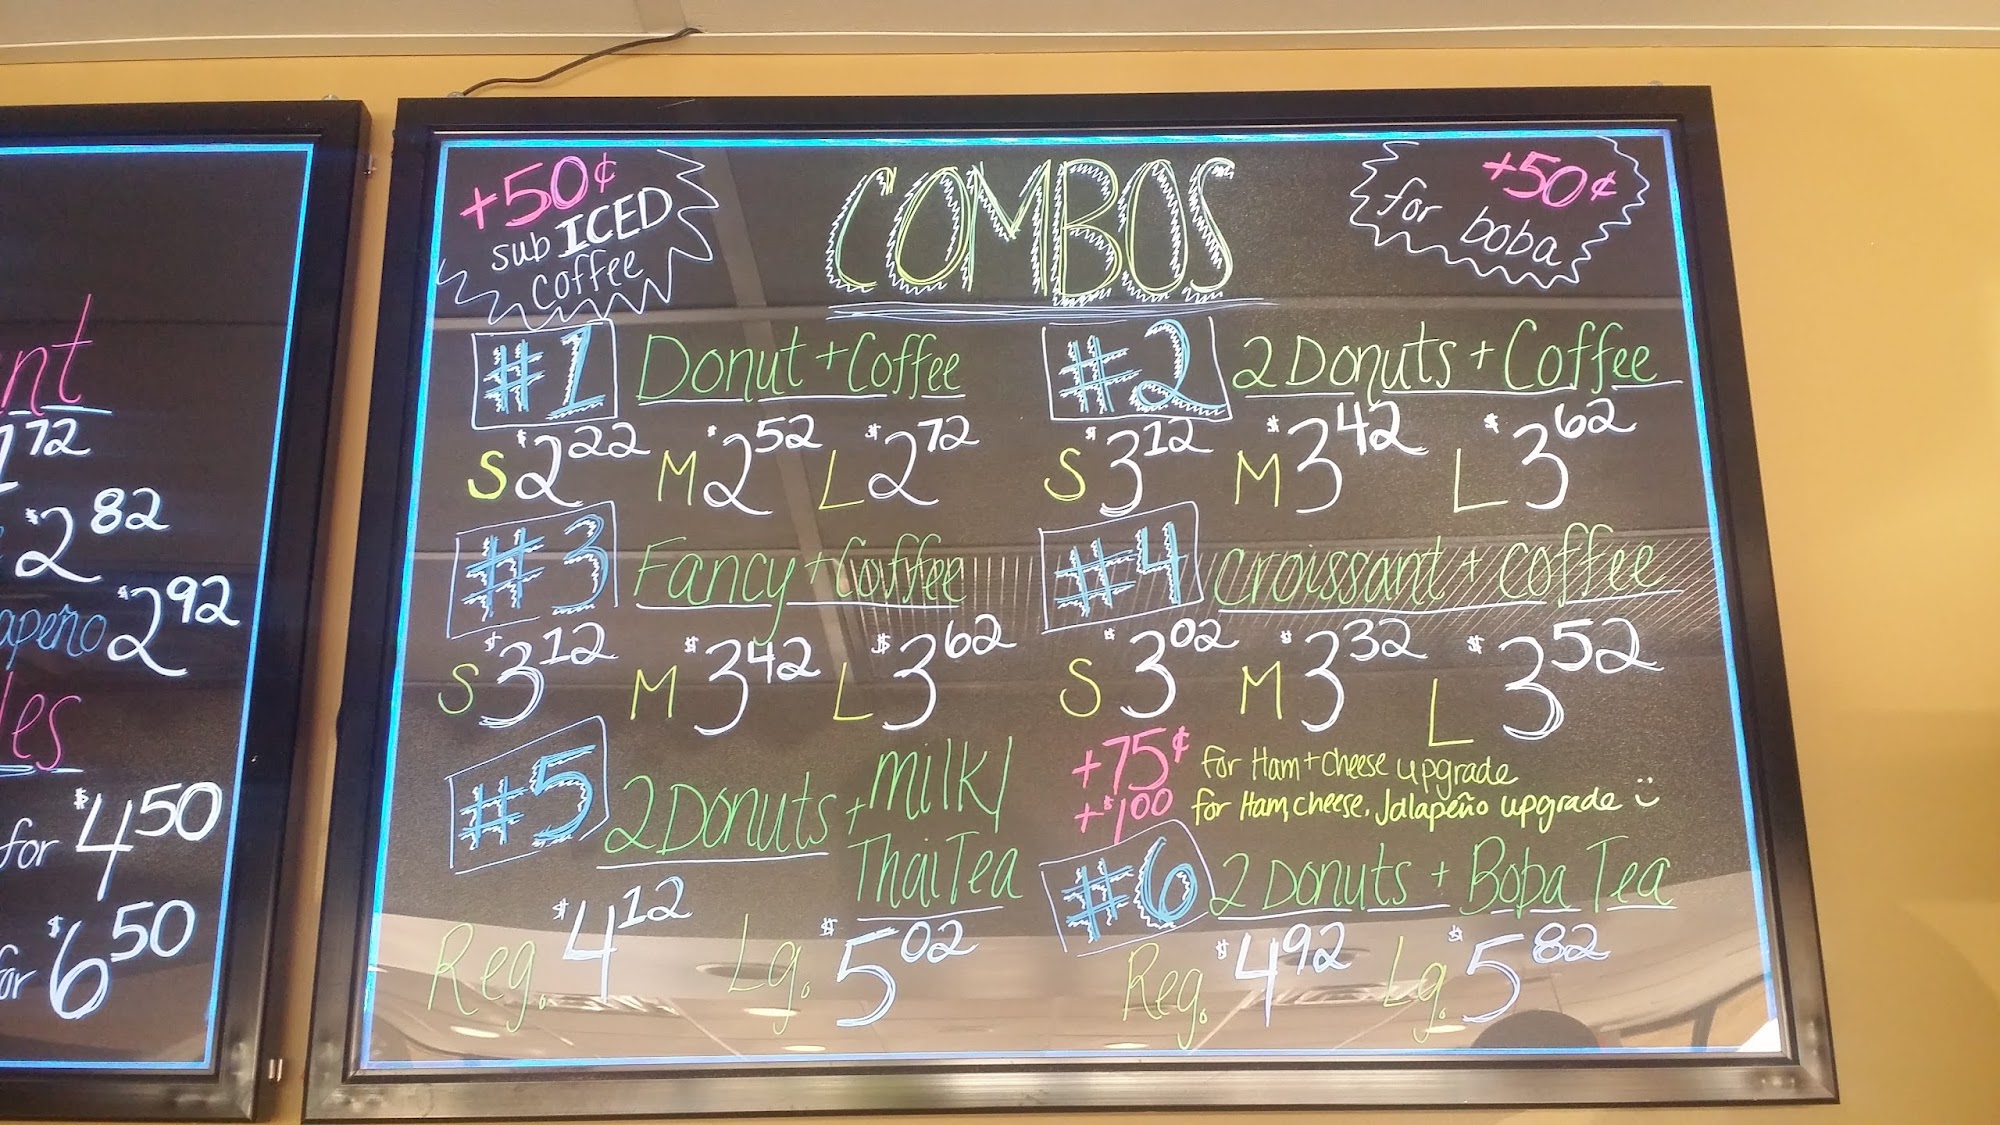 nt
1 72
$2 82
apeño $2 92
les
for $4 50
for $6 50
+50¢
sub ICED
coffee
COMBOS
+50¢
for boba
#1 Donut + Coffee
S $2 22 M $2 52 L $2 72
#2 2 Donuts + Coffee
S $3 12 M $3 42 L $3 62
#3 Fancy + Coffee
S $3 12 M $3 42 L $3 62
#4 Croissant + Coffee
S $3 02 M $3 32 L $3 52
+75¢ for Ham + Cheese upgrade
+$1 00 for Ham, cheese, Jalapeño upgrade
#5 2 Donuts + milk/
Thai Tea
Reg. $4 12 Lg. $5 02
#6 2 Donuts + Boba Tea
Reg. $4 92 Lg. $5 82